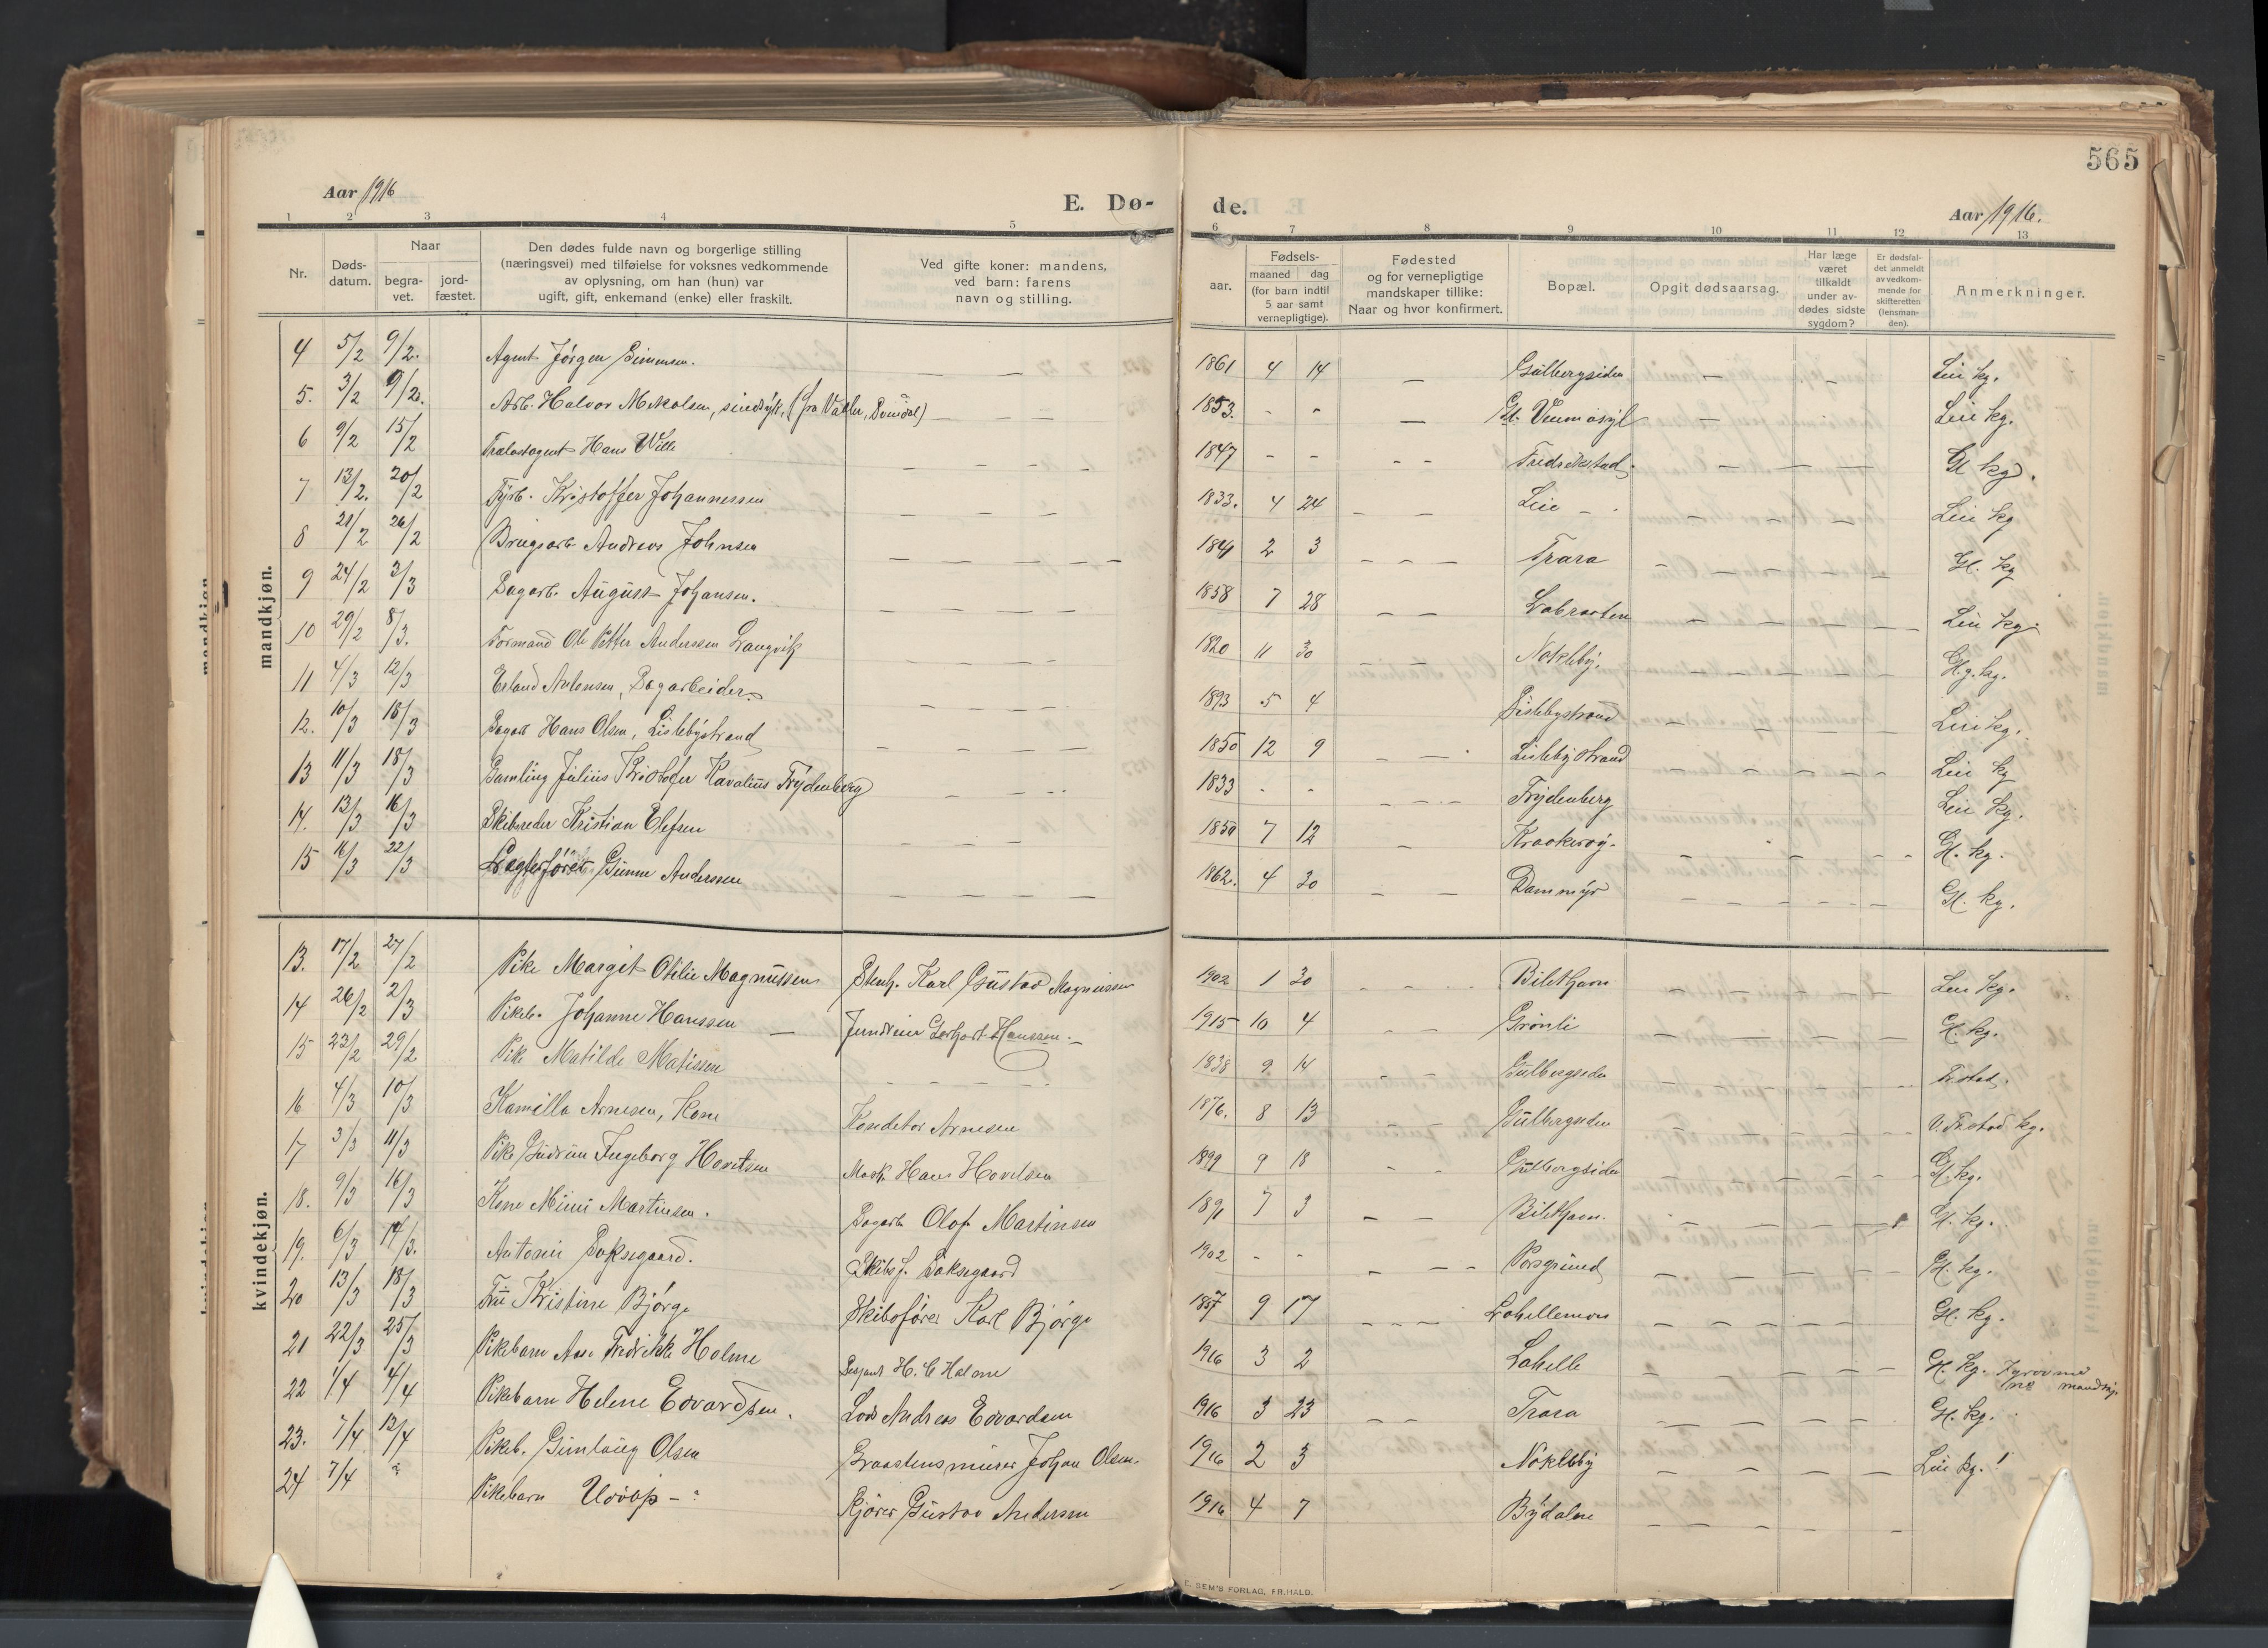 565
Aar 1916
E. Dø-
de.
Aar 1916.
1 2 3 4 5 6 7 8 9 10 11 12 13
Nr.
Døds-
datum.
Naar
begra-
vet.
jord-
fæstet.
Den dødes fulde navn og borgerlige stilling
(næringsvei) med tilføielse for voksnes vedkommende
av oplysning, om han (hun) var
ugift, gift, enkemand (enke) eller fraskilt.
Ved gifte koner: mandens,
ved barn: farens
navn og stilling.
Fødsels-
aar.
maaned dag
(for barn indtil
5 aar samt
vernepligtige).
Fødested
og for vernepligtige
mandskaper tillike:
Naar og hvor konfirmert.
Bopæl.
Opgit dødsaarsag.
Har læge
været
tilkaldt
under av-
dødes sidste
sygdom?
Er dødsfal-
det anmeldt
av vedkom-
mende for
skifteretten
(lensman-
den).
Anmerkninger.
mandkjøn.
4 5/2 9/2. Agent Jörgen Simensen. — — — 1861 4 14 — Gulbergsiden — — Leie kg.
5. 3/2 9/2. Arb. Halvor Nikolsen, sindsyk, (fra Valler, ) — — — 1853. - - — Gl. — Leie kg.
6 9/2 15/2 Trælastagent Hans Wille — — — — 1847 - - - - Fredrikstad — — — Gl kg.
7 13/2. 20/2 Kristoffer Johannessen — — — — 1833. 4 24 — — Leie — — — Leie kg
8 21/2 26/2 Brugsarb. Andreas Johnsen — — — — — 2 3 — — — Trara — — — — Gl. kg
9 24/2 3/3 Sagarb. August Johansen. — — — — 1858 7 28 — — Labraaten — — — Leie kg.
10 29/2 8/3. Formand Ole Petter Anderssen Langvik — — — — 1820 11 30 — — Nokleby. Gl. kg.
11 4/3 12/3 Erland Antonsen, Sagarbeider — — — — 1893 5 4 Lislebystrand — — — Leie kg.
12. 10/3 18/3 Sagarb Hans Olsen, Lislebystrand — — — — — 1850 12 9 — — Lislebystrand — — — — Leie kg
13 11/3 18/3 Gamling Julius Kristofer Kavalius Frydenberg — — — 1833 - - — — — Frydenberg — — — Leie kg.
14. 13/3 16/3 Skibsreder Kristian Elefsen — — — 1850 7 12 — Kraakerøy. — — — Gl. kg.
15 16/3 22/3 Gunne Anderssen — — — — — 1862. 4 30 — — Dammyr — — — — Gl. kg.
kvindekjøn.
13. 17/2 27/2 Pike Margit Otilie Magnussen Stenh. Karl Gustav Magnussen 1902 1 30 - - - Bilithavn — — — Leie kg.
14 26/2 2/3 Pikeb. Johanne Hanssen — Gerhart Hanssen. 1915 10 4 - - Grønli — — — Gl. kg.
15 23/2 29/2. Pike Matilde Matissen — — — — 1838 9 14 - - Gulbergsiden — — — F.stad.
16 4/3 10/3 Kamilla Arnesen, Kone Konditor Arnesen 1876. 8 13 — — Gulbergsiden — — — V. Fr.stad kg.
17 3/3 11/3 Pike Gudrun Ingeborg Hovelsen Mask. Hans Hovelsen 1899 9 18 - - Gulbergsiden — — — Gl. kg.
18. 9/3 16/3 Kone Mimi Martinsen. Sagarb. Olof Martinsen 1891 7 3 — — Bilithavn. — — — Gl. kg.
19. 6/3 14/3. Antonie Saksegaard. Skibsf. Saksegaard 1902 - - — - - Porsgrund — — — Gl. kg.
20 13/3 18/3 Fru Kristine Bjørge Skibsfører Karl Bjørge 1857 9 17 — — — — — — Gl. kg.
21 22/3 25/3 Pikebarn Aase Fredrikke Holme Sergeant H. C Holme 1916 3 2 Lahelle — — — Gl. kg.
22 1/4 4/4 Pikebarn Helene Edvardsen. Lods Andreas Edvardsen 1916 3 23 — — Trara — — — Gl. kg.
23. 7/4 12/4 Pikeb. Gunlaug Olsen Graastensmurer Johan Olsen. 1916 2 3 Nokleby — — — Leie kg.!
24 7/4 Pikebarn Udøpt - Kjører Gustav Andersen 1916 4 7 Bydalen — — — —
E. SEM'S FORLAG, FR.HALD.